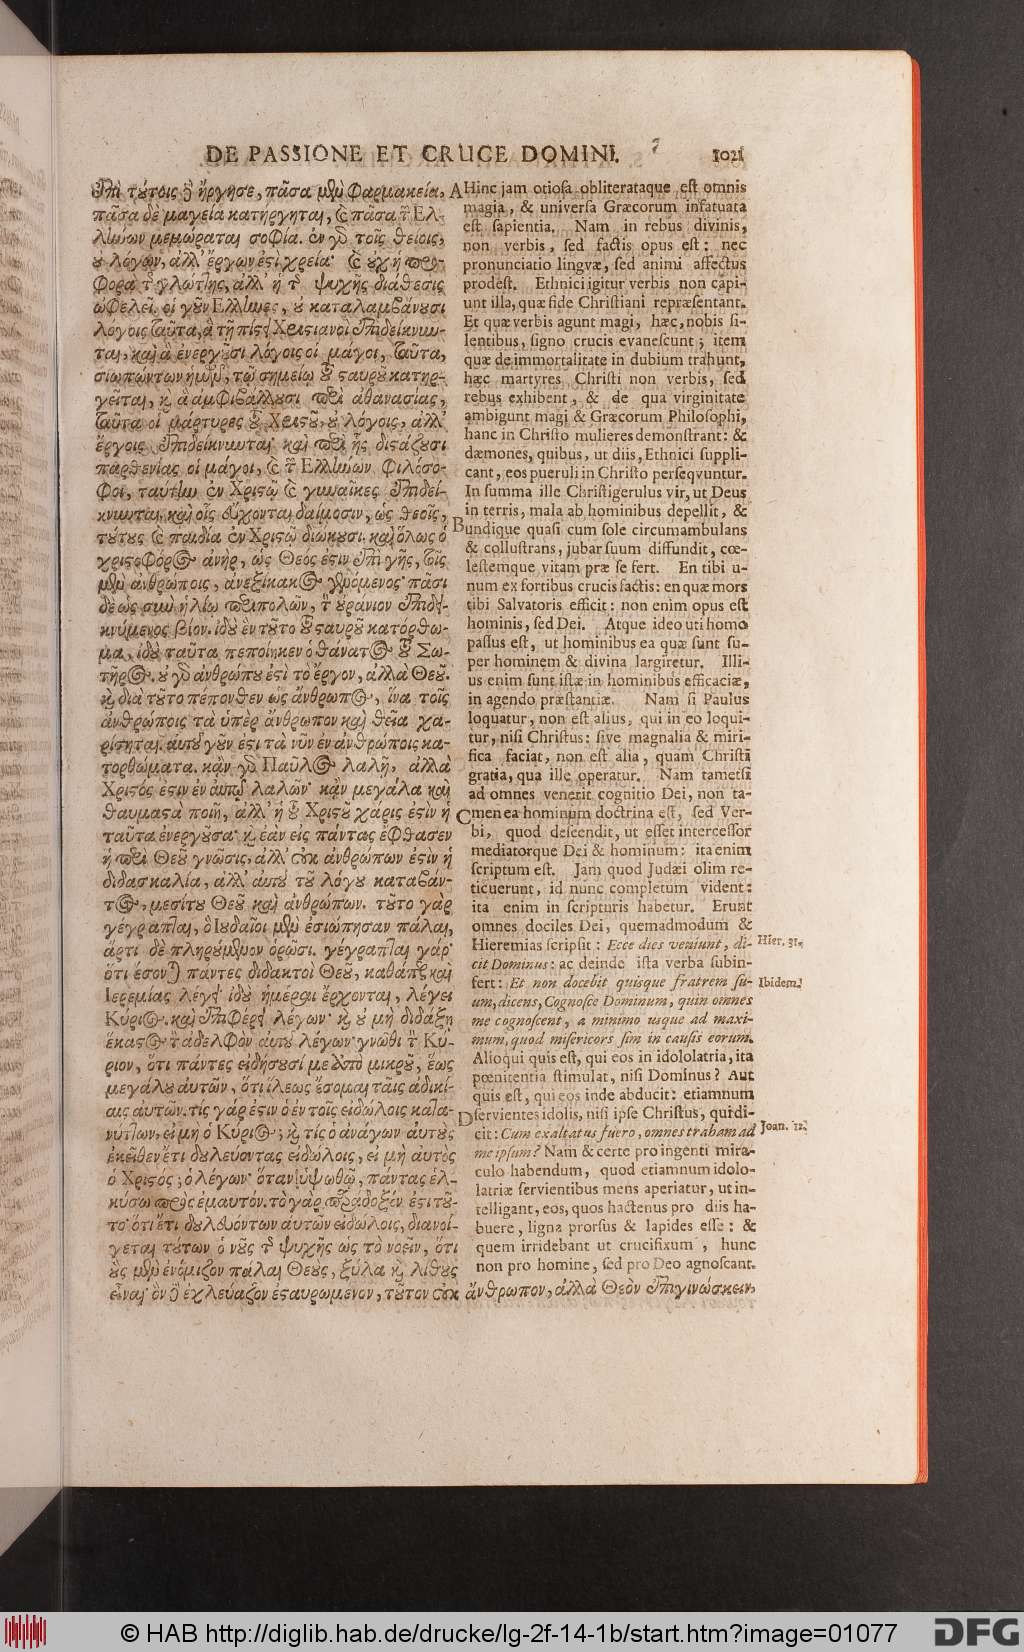 DE PASSIONE ET CRUCE DOMINI. 1021
Ἐπὶ τούτοις δὲ ἤργησε, πᾶσα μὲν Φαρμακεία,
πᾶσα δὲ μαγεία κατήργηται, καὶ πᾶσα τῶν Ἑλ-
λήνων μεμώραται σοφία. ἐν γὰρ τοῖς θείοις,
οὐ λόγων, ἀλλ' ἔργων ἐστὶ χρεία· καὶ οὐχ ἡ προ-
φορὰ τῆς γλώττης, ἀλλ' ἡ τῆς ψυχῆς διάθεσις
ὠφελεῖ. οἱ γοῦν Ἕλληνες, οὐ καταλαμβάνουσι
λόγοις ταῦτα, ἃ τῇ πίστει Χριστιανοὶ ἐπιδείκνυν-
ται, καὶ ἃ ἐνεργοῦσι λόγοις οἱ μάγοι, ταῦτα,
σιωπώντων ἡμῶν, τῷ σημείῳ τοῦ σταυροῦ καταρ-
γεῖται, καὶ ἃ ἀμφιβάλλουσι περὶ ἀθανασίας,
ταῦτα οἱ μάρτυρες τοῦ Χριστοῦ, οὐ λόγοις, ἀλλ'
ἔργοις ἐπιδείκνυνται· καὶ περὶ ἧς διστάζουσι
παρθενίας οἱ μάγοι, καὶ τῶν Ἑλλήνων φιλόσο-
φοι, ταύτην ἐν Χριστῷ καὶ γυναῖκες ἐπιδεί-
κνυνται, καὶ οἷς εὔχονται δαίμοσιν, ὡς θεοῖς,
τούτους καὶ παιδία ἐν Χριστῷ διώκουσι. καὶ ὅλως ὁ
χριστοφόρος ἀνὴρ, ὡς Θεός ἐστιν ἐπὶ γῆς, τοῖς
μὲν ἀνθρώποις, ἀνεξίκακος γενόμενος· πᾶσι
δὲ ὡς σὺν ἡλίῳ περιπολῶν, τὸν οὐράνιον ἐπιδει-
κνύμενος βίον. ἰδοὺ ἓν τοῦτο τοῦ σταυροῦ κατόρθω-
μα, ἰδοὺ ταῦτα πεποίηκεν ὁ θάνατος τοῦ Σω-
τῆρος. οὐ γὰρ ἀνθρώπου ἐστὶ τὸ ἔργον, ἀλλὰ Θεοῦ.
καὶ διὰ τοῦτο πέπονθεν ὡς ἄνθρωπος, ἵνα τοῖς
ἀνθρώποις τὰ ὑπὲρ ἄνθρωπον καὶ θεῖα χα-
ρίσηται. αὐτοῦ γοῦν ἐστι τὰ νῦν ἐν ἀνθρώποις κα-
τορθώματα. κἂν γὰρ Παῦλος λαλῇ, ἀλλὰ
Χριστός ἐστιν ἐν αὐτῷ λαλῶν· κἂν μεγάλα καὶ
θαυμαστὰ ποιῇ, ἀλλ' ἡ τοῦ Χριστοῦ χάρις ἐστὶν ἡ
ταῦτα ἐνεργοῦσα· καὶ ἐὰν εἰς πάντας ἔφθασεν
ἡ περὶ Θεοῦ γνῶσις, ἀλλ' οὐκ ἀνθρώπων ἐστὶν ἡ
διδασκαλία, ἀλλ' αὐτοῦ τοῦ λόγου καταβάν-
τος, μεσίτου Θεοῦ καὶ ἀνθρώπων. τοῦτο γὰρ
γέγραπται, ὃ Ἰουδαῖοι μὲν ἐσιώπησαν πάλαι,
ἄρτι δὲ πληρούμενον ὁρῶσι. γέγραπται γάρ·
ὅτι ἔσονται πάντες διδακτοὶ Θεοῦ, καθάπερ καὶ
Ἱερεμίας λέγει· ἰδοὺ ἡμέραι ἔρχονται, λέγει
Κύριος. καὶ ἐπιφέρει λέγων· καὶ οὐ μὴ διδάξῃ
ἕκαστος τὸν ἀδελφὸν αὐτοῦ λέγων· γνῶθι τὸν Κύ-
ριον, ὅτι πάντες εἰδήσουσί με ἀπὸ μικροῦ, ἕως
μεγάλου αὐτῶν, ὅτι ἵλεως ἔσομαι ταῖς ἀδικί-
αις αὐτῶν. τίς γάρ ἐστιν ὁ ἐν τοῖς εἰδώλοις κατα-
νύττων, εἰ μὴ ὁ Κύριος; καὶ τίς ὁ ἀνάγων αὐτοὺς
ἐκεῖθεν ἔτι δουλεύοντας εἰδώλοις, εἰ μὴ αὐτὸς
ὁ Χριστός; ὁ λέγων· ὅταν ὑψωθῶ, πάντας ἑλ-
κύσω πρὸς ἐμαυτόν. τὸ γὰρ παράδοξόν ἐστι τοῦ-
το· ὅτι ἔτι δουλευόντων αὐτῶν εἰδώλοις, διανοί-
γεται τούτων ὁ νοῦς τῆς ψυχῆς ὡς τὸ νοεῖν, ὅτι
οὓς μὲν ἐνόμιζον πάλαι Θεοὺς, ξύλα καὶ λίθους
εἶναι· ὃν δὲ ἐχλεύαζον ἐσταυρωμένον, τοῦτον οὐκ ἄνθρωπον, ἀλλὰ Θεὸν ἐπιγινώσκειν,
A Hinc jam otiosa obliterataque est omnis
magia, & universa Græcorum infatuata
est sapientia. Nam in rebus divinis,
non verbis, sed factis opus est: nec
pronunciatio lingvæ, sed animi affectus
prodest. Ethnici igitur verbis non capi-
unt illa, quæ fide Christiani repræsentant.
Et quæ verbis agunt magi, hæc, nobis si-
lentibus, signo crucis evanescunt; item
quæ de immortalitate in dubium trahunt,
hæc martyres Christi non verbis, sed
rebus exhibent, & de qua virginitate
ambigunt magi & Græcorum Philosophi,
hanc in Christo mulieres demonstrant: &
dæmones, quibus, ut diis, Ethnici suppli-
cant, eos pueruli in Christo perseqvuntur.
In summa ille Christigerulus vir, ut Deus
in terris, mala ab hominibus depellit, &
B undique quasi cum sole circumambulans
& collustrans, jubar suum diffundit, cœ-
lestemque vitam præ se fert. En tibi u-
num ex fortibus crucis factis: en quæ mors
tibi Salvatoris efficit: non enim opus est
hominis, sed Dei. Atque ideo uti homo
passus est, ut hominibus ea quæ sunt su-
per hominem & divina largiretur. Illi-
us enim sunt istæ in hominibus efficaciæ,
in agendo præstantiæ. Nam si Paulus
loquatur, non est alius, qui in eo loqui-
tur, nisi Christus: sive magnalia & miri-
fica faciat, non est alia, quam Christi
gratia, qua ille operatur. Nam tametsi
ad omnes venerit cognitio Dei, non ta-
C men ea hominum doctrina est, sed Ver-
bi, quod descendit, ut esset intercessor
mediatorque Dei & hominum: ita enim
scriptum est. Jam quod Judæi olim re-
ticuerunt, id nunc completum vident:
ita enim in scripturis habetur. Erunt
omnes dociles Dei, quemadmodum &
Hieremias scripsit: Ecce dies veniunt, di-
cit Dominus: ac deinde ista verba subin-
fert: Et non docebit quisque fratrem su-
um, dicens, Cognosce Dominum, quin omnes
me cognoscent, a minimo usque ad maxi-
mum, quod misericors sim in causis eorum.
Alioqui quis est, qui eos in idololatria, ita
pœnitentia stimulat, nisi Dominus? Aut
quis est, qui eos inde abducit: etiamnum
D servientes idolis, nisi ipse Christus, qui di-
cit: Cum exaltatus fuero, omnes traham ad
me ipsum? Nam & certe pro ingenti mira-
culo habendum, quod etiamnum idolo-
latriæ servientibus mens aperiatur, ut in-
telligant, eos, quos hactenus pro diis ha-
buere, ligna prorsus & lapides esse: &
quem irridebant ut crucifixum, hunc
non pro homine, sed pro Deo agnoscant.
Hier. 31.
Ibidem.
Joan. 12.
© HAB http://diglib.hab.de/drucke/lg-2f-14-1b/start.htm?image=01077
DFG